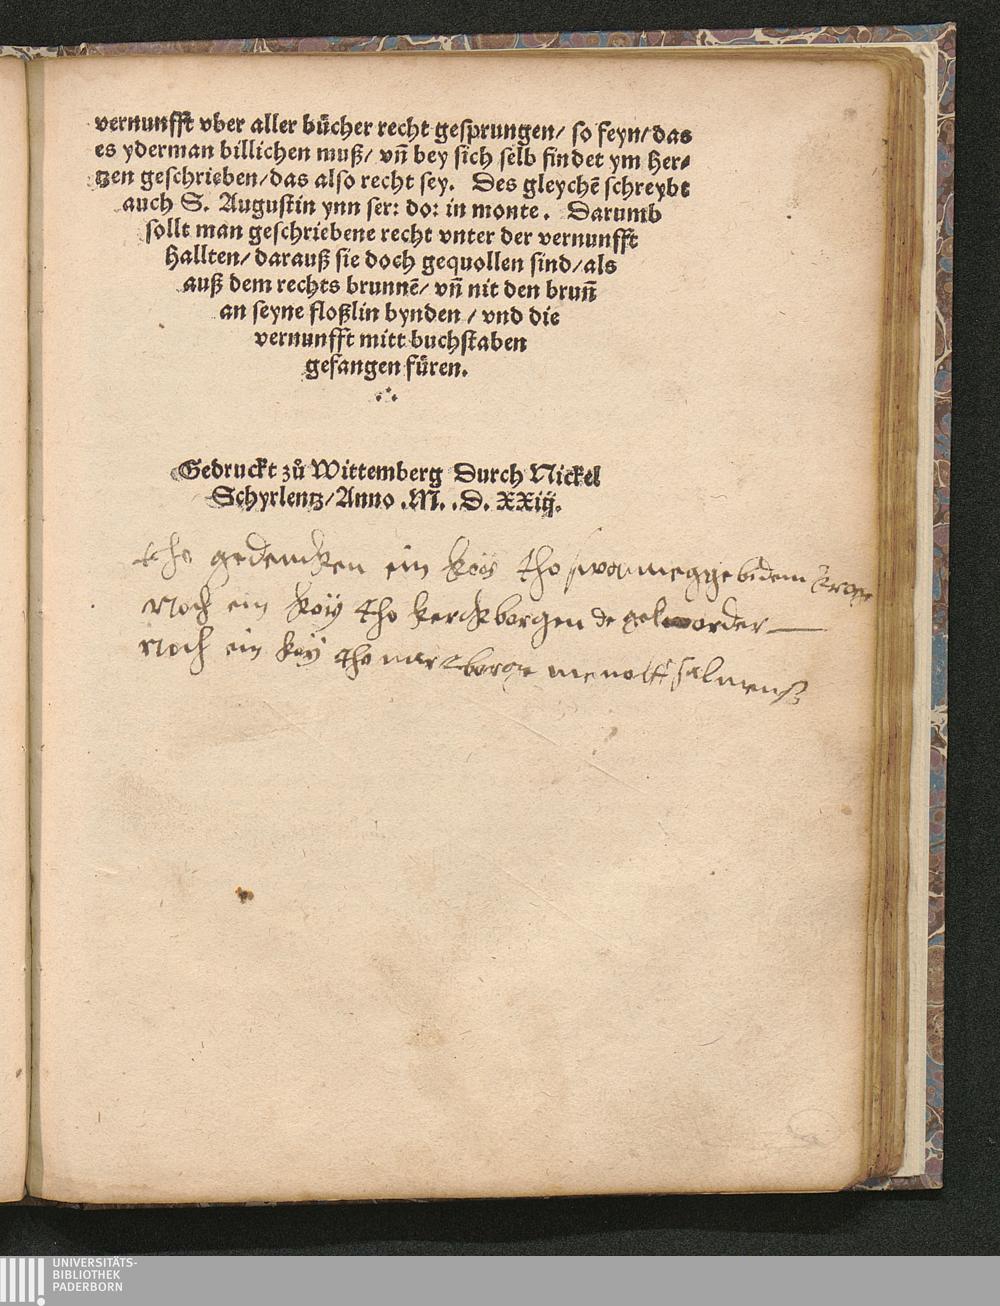 vernunfft vber aller bücher recht gesprungen/ so feyn/ das
es yderman billichen muß/ vñ bey sich selb findet ym her-
tzen geschrieben/ das also recht sey. Des gleychē schreybt
auch S. Augustin ynn ser: do: in monte. Darumb
sollt man geschriebene recht vnter der vernunfft
hallten/ darauß sie doch gequollen sind/ als
auß dem rechts brunnē/ vñ nit den brun̄
an seyne floßlin bynden/ vnd die
vernunfft mitt buchstaben
gefangen füren.
Gedruckt zů Wittemberg Durch Nickel
Schyrlentz/ Anno .M. .D. XXiij.
tho gedencken ein koy tho
Noch ein koy tho kerckborgen de
Noch ein koy tho
UNIVERSITÄTS-
BIBLIOTHEK
PADERBORN